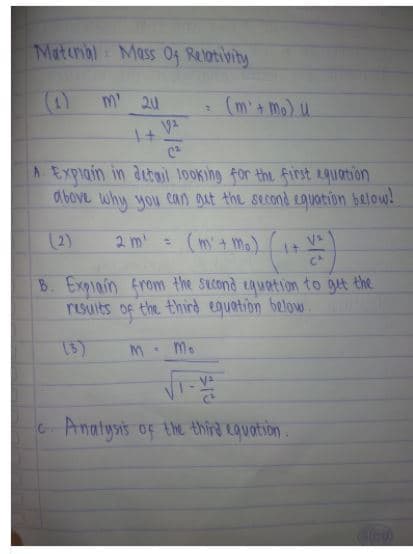 Material : Mass Of Relativity
(1) m' 2u / 1 + V²/c² = (m' + m₀) u
A. Explain in detail looking for the first equation
above why you can get the second equation below!
(2) 2 m' = (m' + m₀) (1 + V²/c²)
B. Explain from the second equation to get the
results of the third equation below.
(3) m = m₀ / √1 - V²/c²
C. Analysis of the third equation.